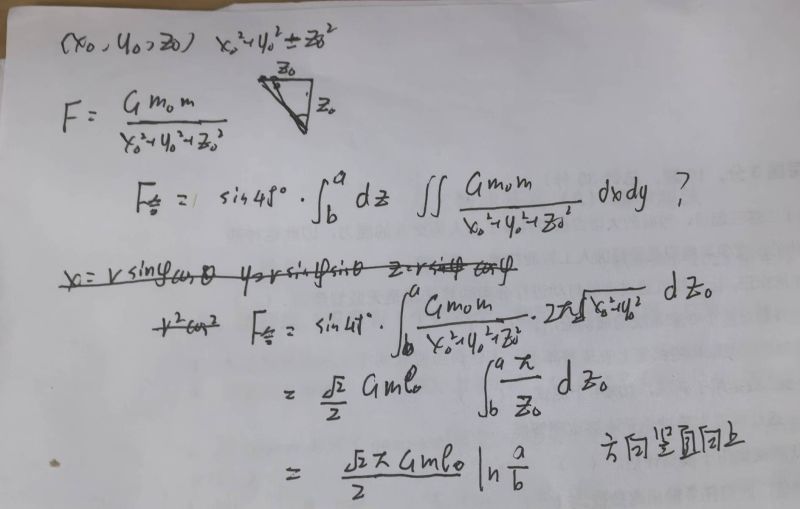 (x₀, y₀, z₀) x₀²+y₀²=z₀²
z₀
z₀
F = Gm₀m / (x₀²+y₀²+z₀²)
F合 = sin45° · ∫_b^a dz ∬ Gm₀m / (x₀²+y₀²+z₀²) dxdy ?
x=r sinφcosθ y=r sinφsinθ z=r cosφ
r²cos²
F合 = sin45° · ∫_b^a Gm₀m / (x₀²+y₀²+z₀²) · 2π√(x₀²+y₀²) dz₀
= √2/2 Gmρ₀ ∫_b^a π/z₀ dz₀
= √2πGmρ₀ / 2 ln a/b 方向竖直向上